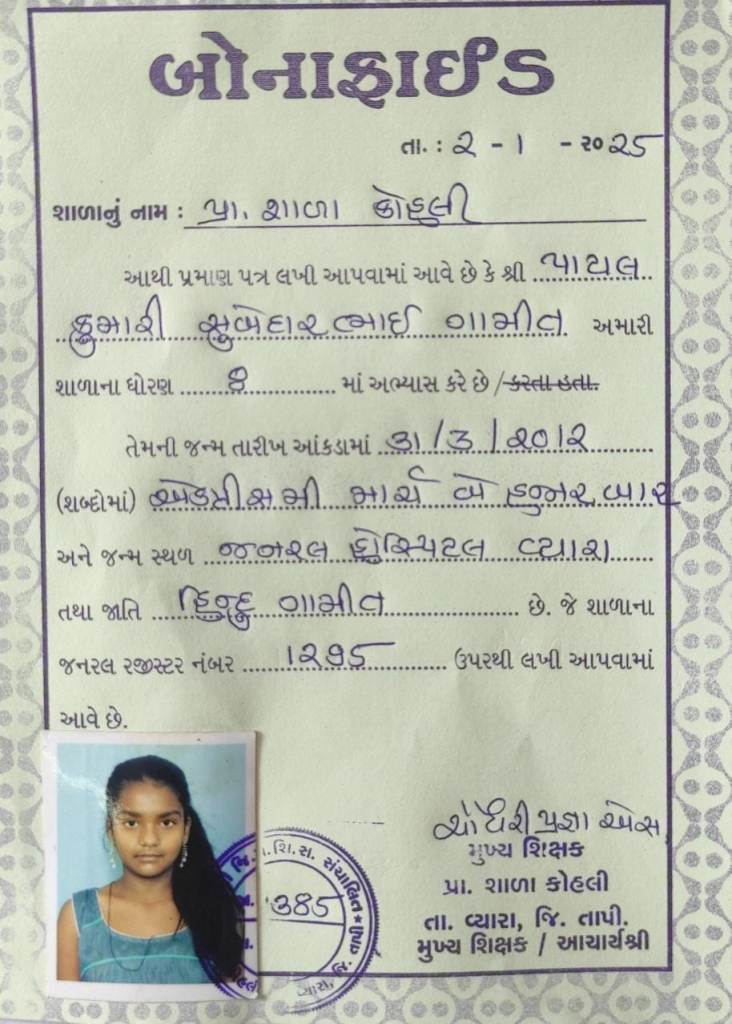 બોનાફાઈડ
તા. : ૨ - ૧ - ૨૦૨૫
શાળાનું નામ : પ્રા. શાળા કોહલી
આથી પ્રમાણ પત્ર લખી આપવામાં આવે છે કે શ્રી પાયલ
કુમારી સુબેદારભાઈ ગામીત અમારી
શાળાના ધોરણ ૭ માં અભ્યાસ કરે છે / કરતા હતા.
તેમની જન્મ તારીખ આંકડામાં ૩૧/૩/૨૦૧૨
(શબ્દોમાં) એકત્રીસમી માર્ચ બે હજાર બાર
અને જન્મ સ્થળ જનરલ હોસ્પિટલ વ્યારા
તથા જાતિ હિન્દુ ગામીત છે. જે શાળાના
જનરલ રજીસ્ટર નંબર ૧૨૭૫ ઉપરથી લખી આપવામાં
આવે છે.
ચૌધરી પ્રજ્ઞા એસ
મુખ્ય શિક્ષક
પ્રા. શાળા કોહલી
તા. વ્યારા, જિ. તાપી.
મુખ્ય શિક્ષક / આચાર્યશ્રી
શિ. સ. સંચાલિત
385
વ્યારા,